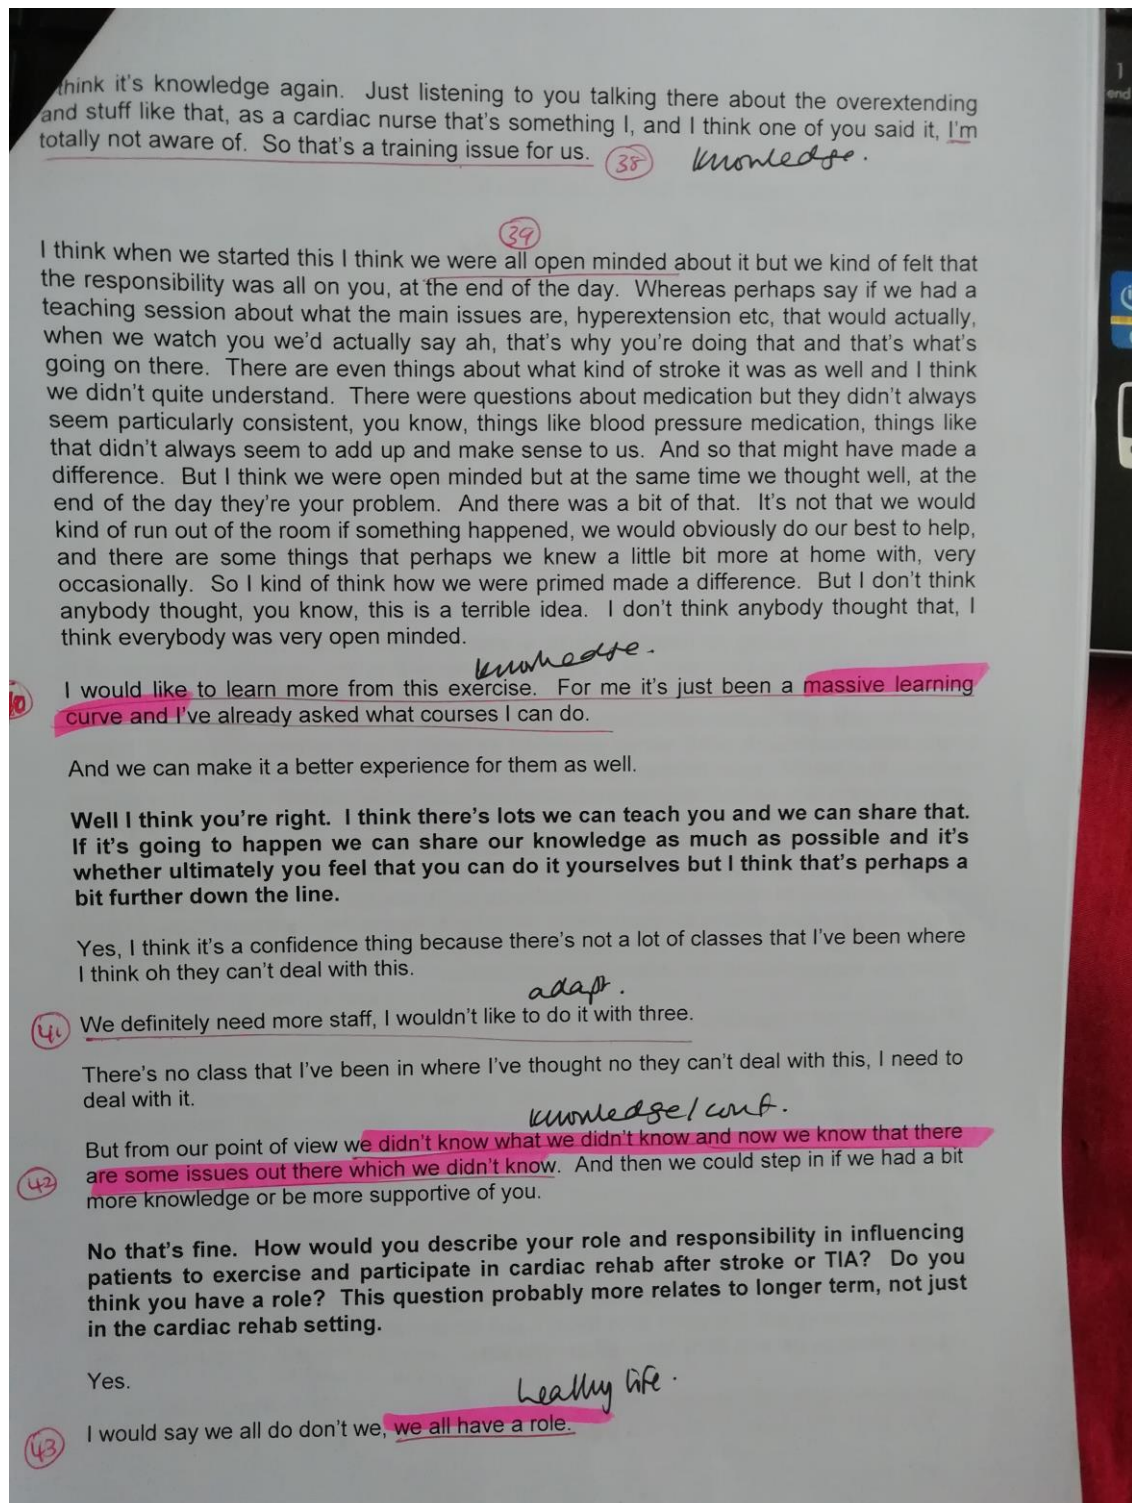 think it's knowledge again. Just listening to you talking there about the overextending
and stuff like that, as a cardiac nurse that's something I, and I think one of you said it, I'm
totally not aware of. So that's a training issue for us. 38 knowledge.
39
I think when we started this I think we were all open minded about it but we kind of felt that
the responsibility was all on you, at the end of the day. Whereas perhaps say if we had a
teaching session about what the main issues are, hyperextension etc, that would actually,
when we watch you we'd actually say ah, that's why you're doing that and that's what's
going on there. There are even things about what kind of stroke it was as well and I think
we didn't quite understand. There were questions about medication but they didn't always
seem particularly consistent, you know, things like blood pressure medication, things like
that didn't always seem to add up and make sense to us. And so that might have made a
difference. But I think we were open minded but at the same time we thought well, at the
end of the day they're your problem. And there was a bit of that. It's not that we would
kind of run out of the room if something happened, we would obviously do our best to help,
and there are some things that perhaps we knew a little bit more at home with, very
occasionally. So I kind of think how we were primed made a difference. But I don't think
anybody thought, you know, this is a terrible idea. I don't think anybody thought that, I
think everybody was very open minded.
knowledge.
I would like to learn more from this exercise. For me it's just been a massive learning
curve and I've already asked what courses I can do.
And we can make it a better experience for them as well.
Well I think you're right. I think there's lots we can teach you and we can share that.
If it's going to happen we can share our knowledge as much as possible and it's
whether ultimately you feel that you can do it yourselves but I think that's perhaps a
bit further down the line.
Yes, I think it's a confidence thing because there's not a lot of classes that I've been where
I think oh they can't deal with this.
adapt.
41 We definitely need more staff, I wouldn't like to do it with three.
There's no class that I've been in where I've thought no they can't deal with this, I need to
deal with it.
knowledge/conf.
But from our point of view we didn't know what we didn't know and now we know that there
42 are some issues out there which we didn't know. And then we could step in if we had a bit
more knowledge or be more supportive of you.
No that's fine. How would you describe your role and responsibility in influencing
patients to exercise and participate in cardiac rehab after stroke or TIA? Do you
think you have a role? This question probably more relates to longer term, not just
in the cardiac rehab setting.
Yes.
healthy life.
43 I would say we all do don't we, we all have a role.